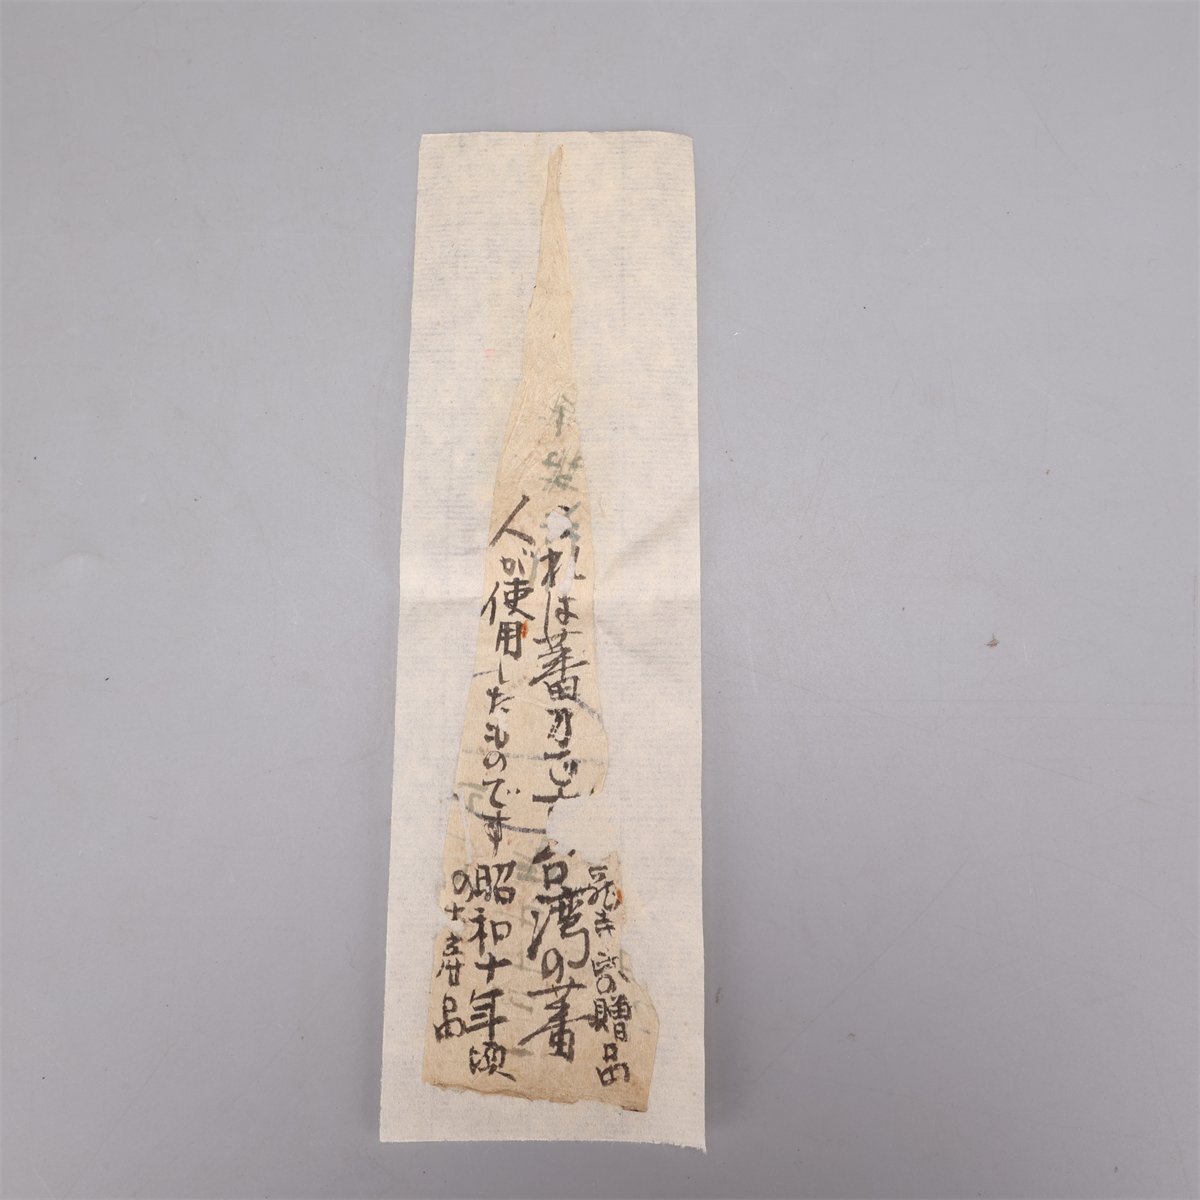 の贈品
これは蕃刀です 台湾の蕃
人が使用したものです 昭和十年頃
の土産品